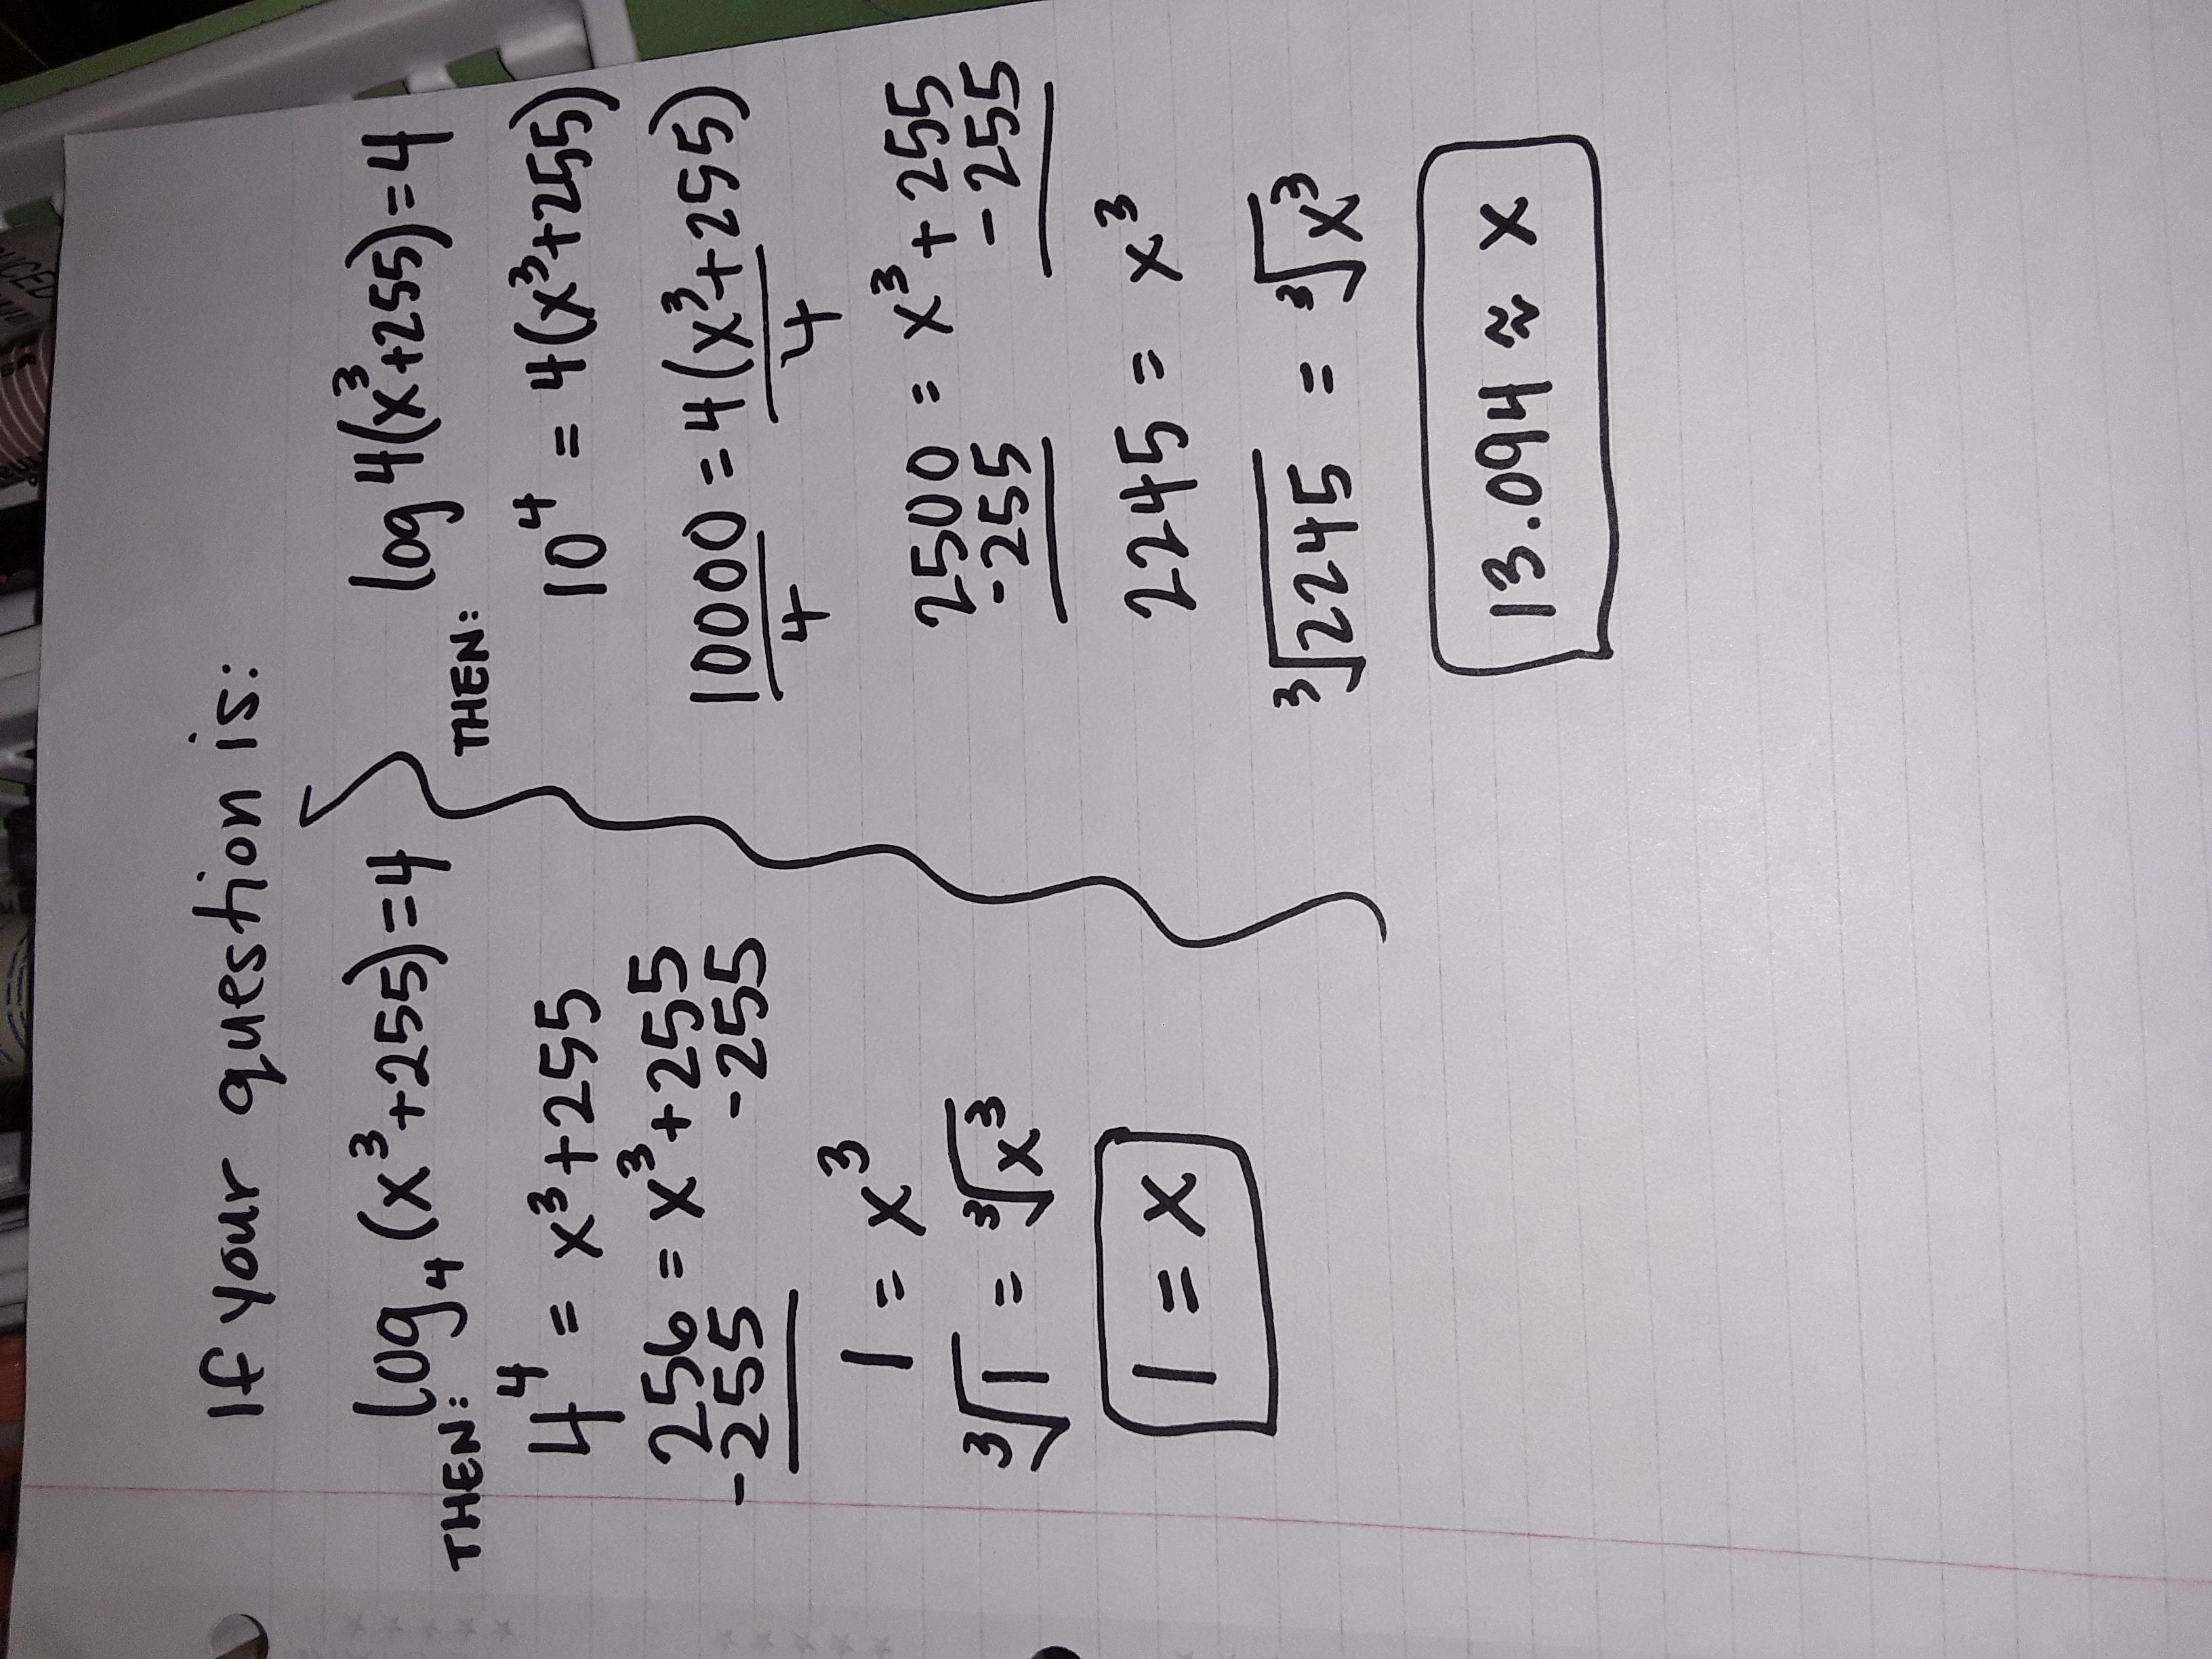 If your question is:
log₄(x³+255)=4
THEN:
4⁴ = x³+255
256 = x³+255
-255 -255
1 = x³
³√1 = ³√x³
1 = x
log 4(x³+255)=4
THEN:
10⁴ = 4(x³+255)
10000 = 4(x³+255)
4 4
2500 = x³+255
-255 -255
2245 = x³
³√2245 = ³√x³
13.094 ≈ x